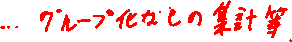 … グループ化なしの集計等